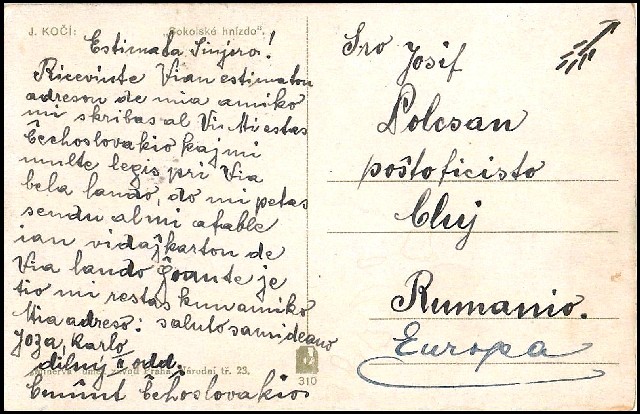 J. KOČÍ: „Sokolské hnízdo“.
Estimata Sinjoro!
Ricevinte Vian estimaton
adreson de mia amiko
mi skribas al Vi. Mi estas
Čeĥoslovakio kaj mi
multe legis pri Via
bela lando, do mi petas
sendu al mi afable
ian vidaĵkarton de
Via lando ĝoante je
tio mi restas kun amiko
Mia adreso: saluto samideano
Joža, Karlo
dílny odd.
Čehoslovakio
Národní tř. 23.
310
Sro Josif
Polcsan
poŝtoficisto
Cluj
Rumanio.
Europa